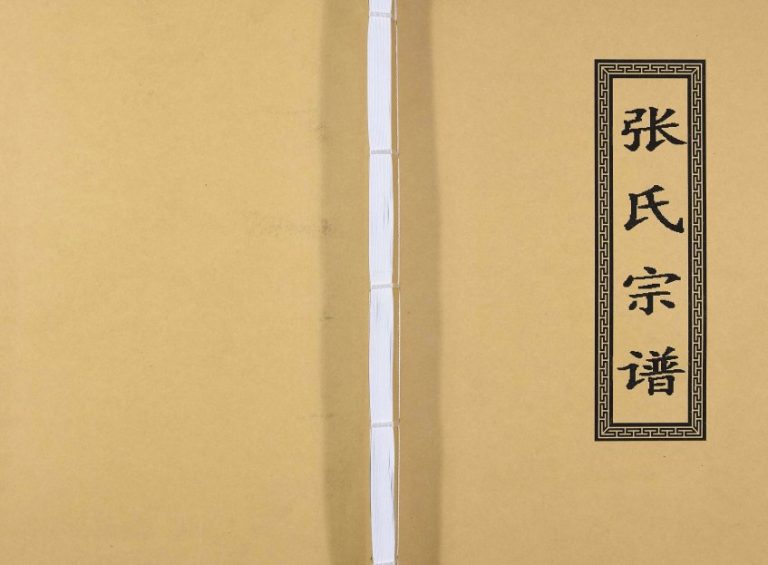 张氏宗谱